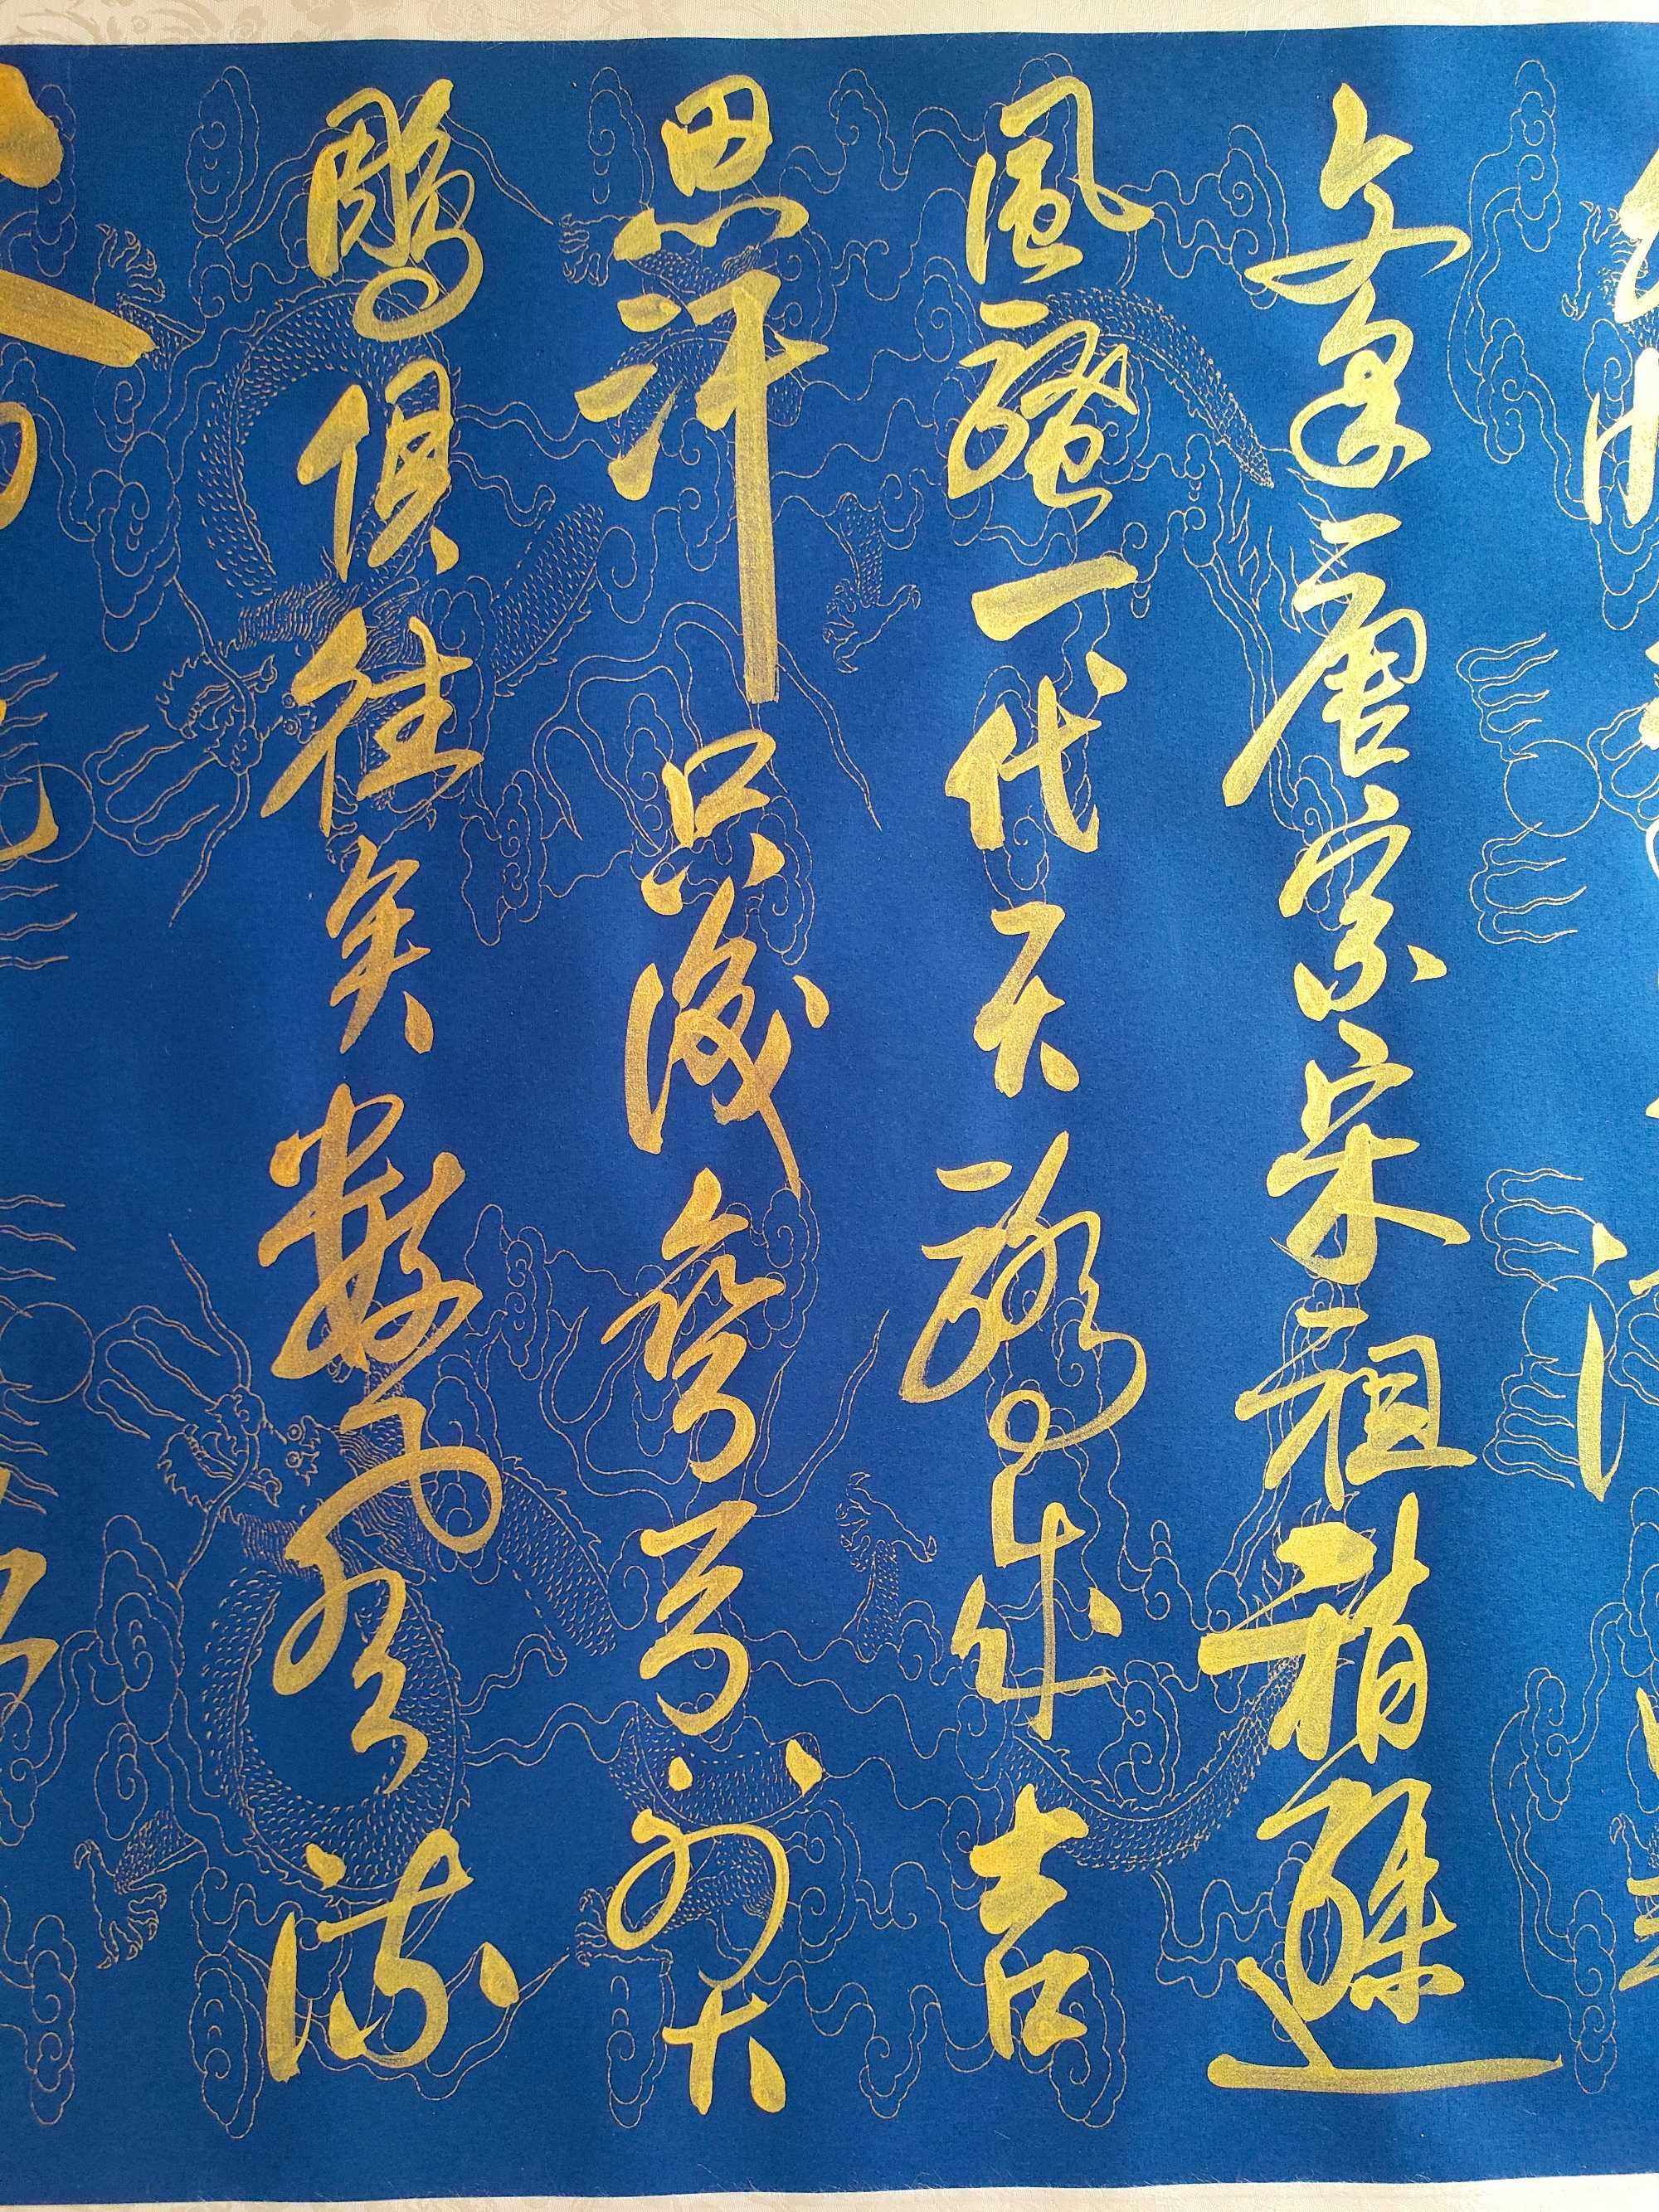 文采唐宗宋祖稍遜
風騷一代天驕成吉
思汗只識彎弓射大
鵰俱往矣數風流